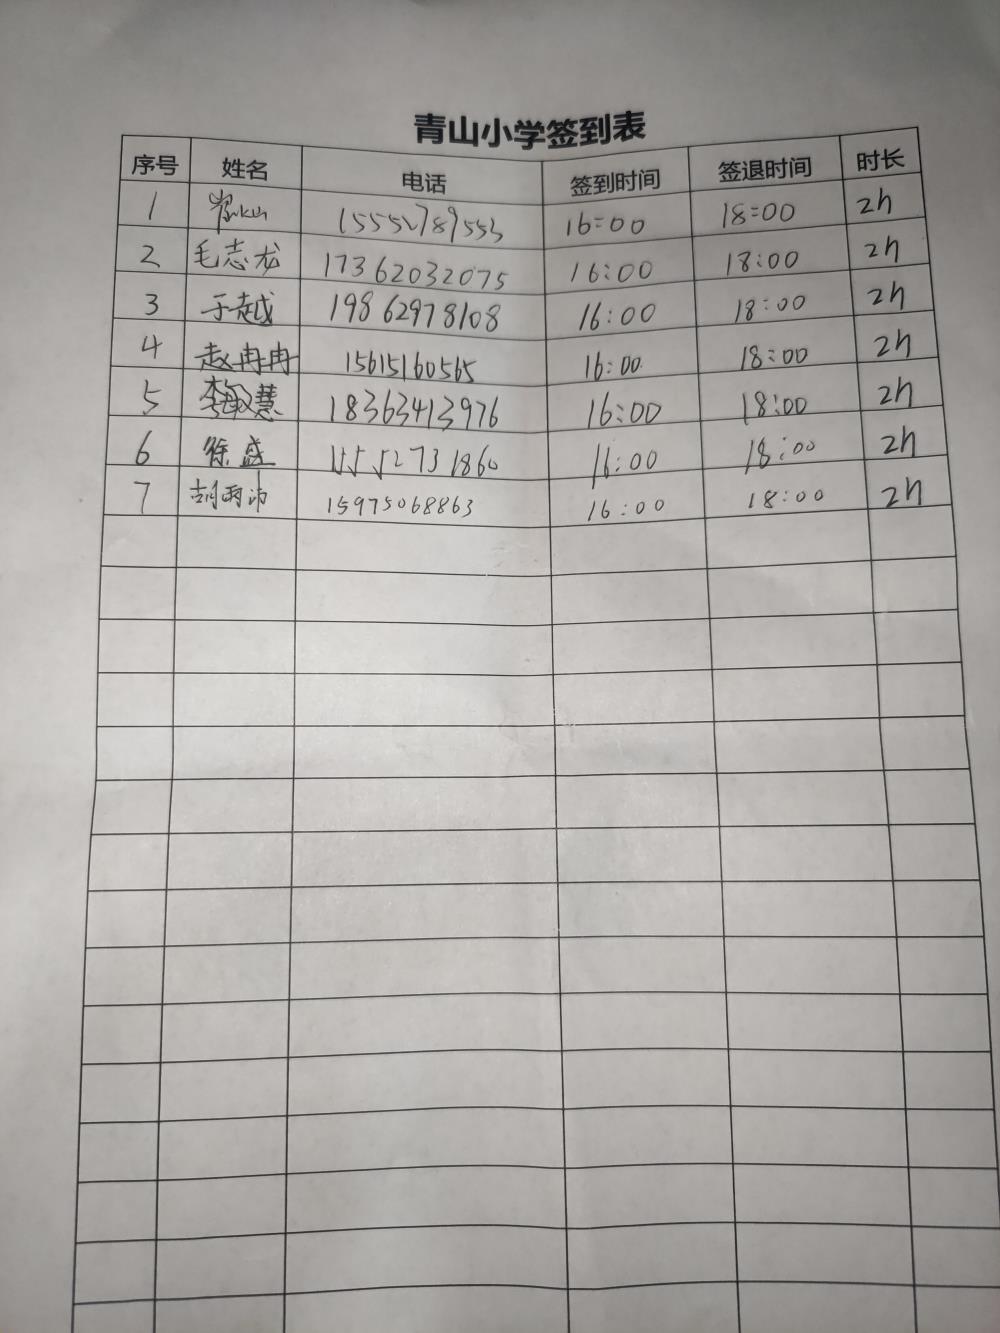 青山小学签到表
序号 姓名 电话 签到时间 签退时间 时长
1 15552789553 16:00 18:00 2h
2 毛志龙 17362032075 16:00 18:00 2h
3 于越 19862978108 16:00 18:00 2h
4 赵冉冉 15615160565 16:00 18:00 2h
5 李敏慧 18363413976 16:00 18:00 2h
6 徐盛 15552731860 16:00 18:00 2h
7 胡雨沛 15975068863 16:00 18:00 2h